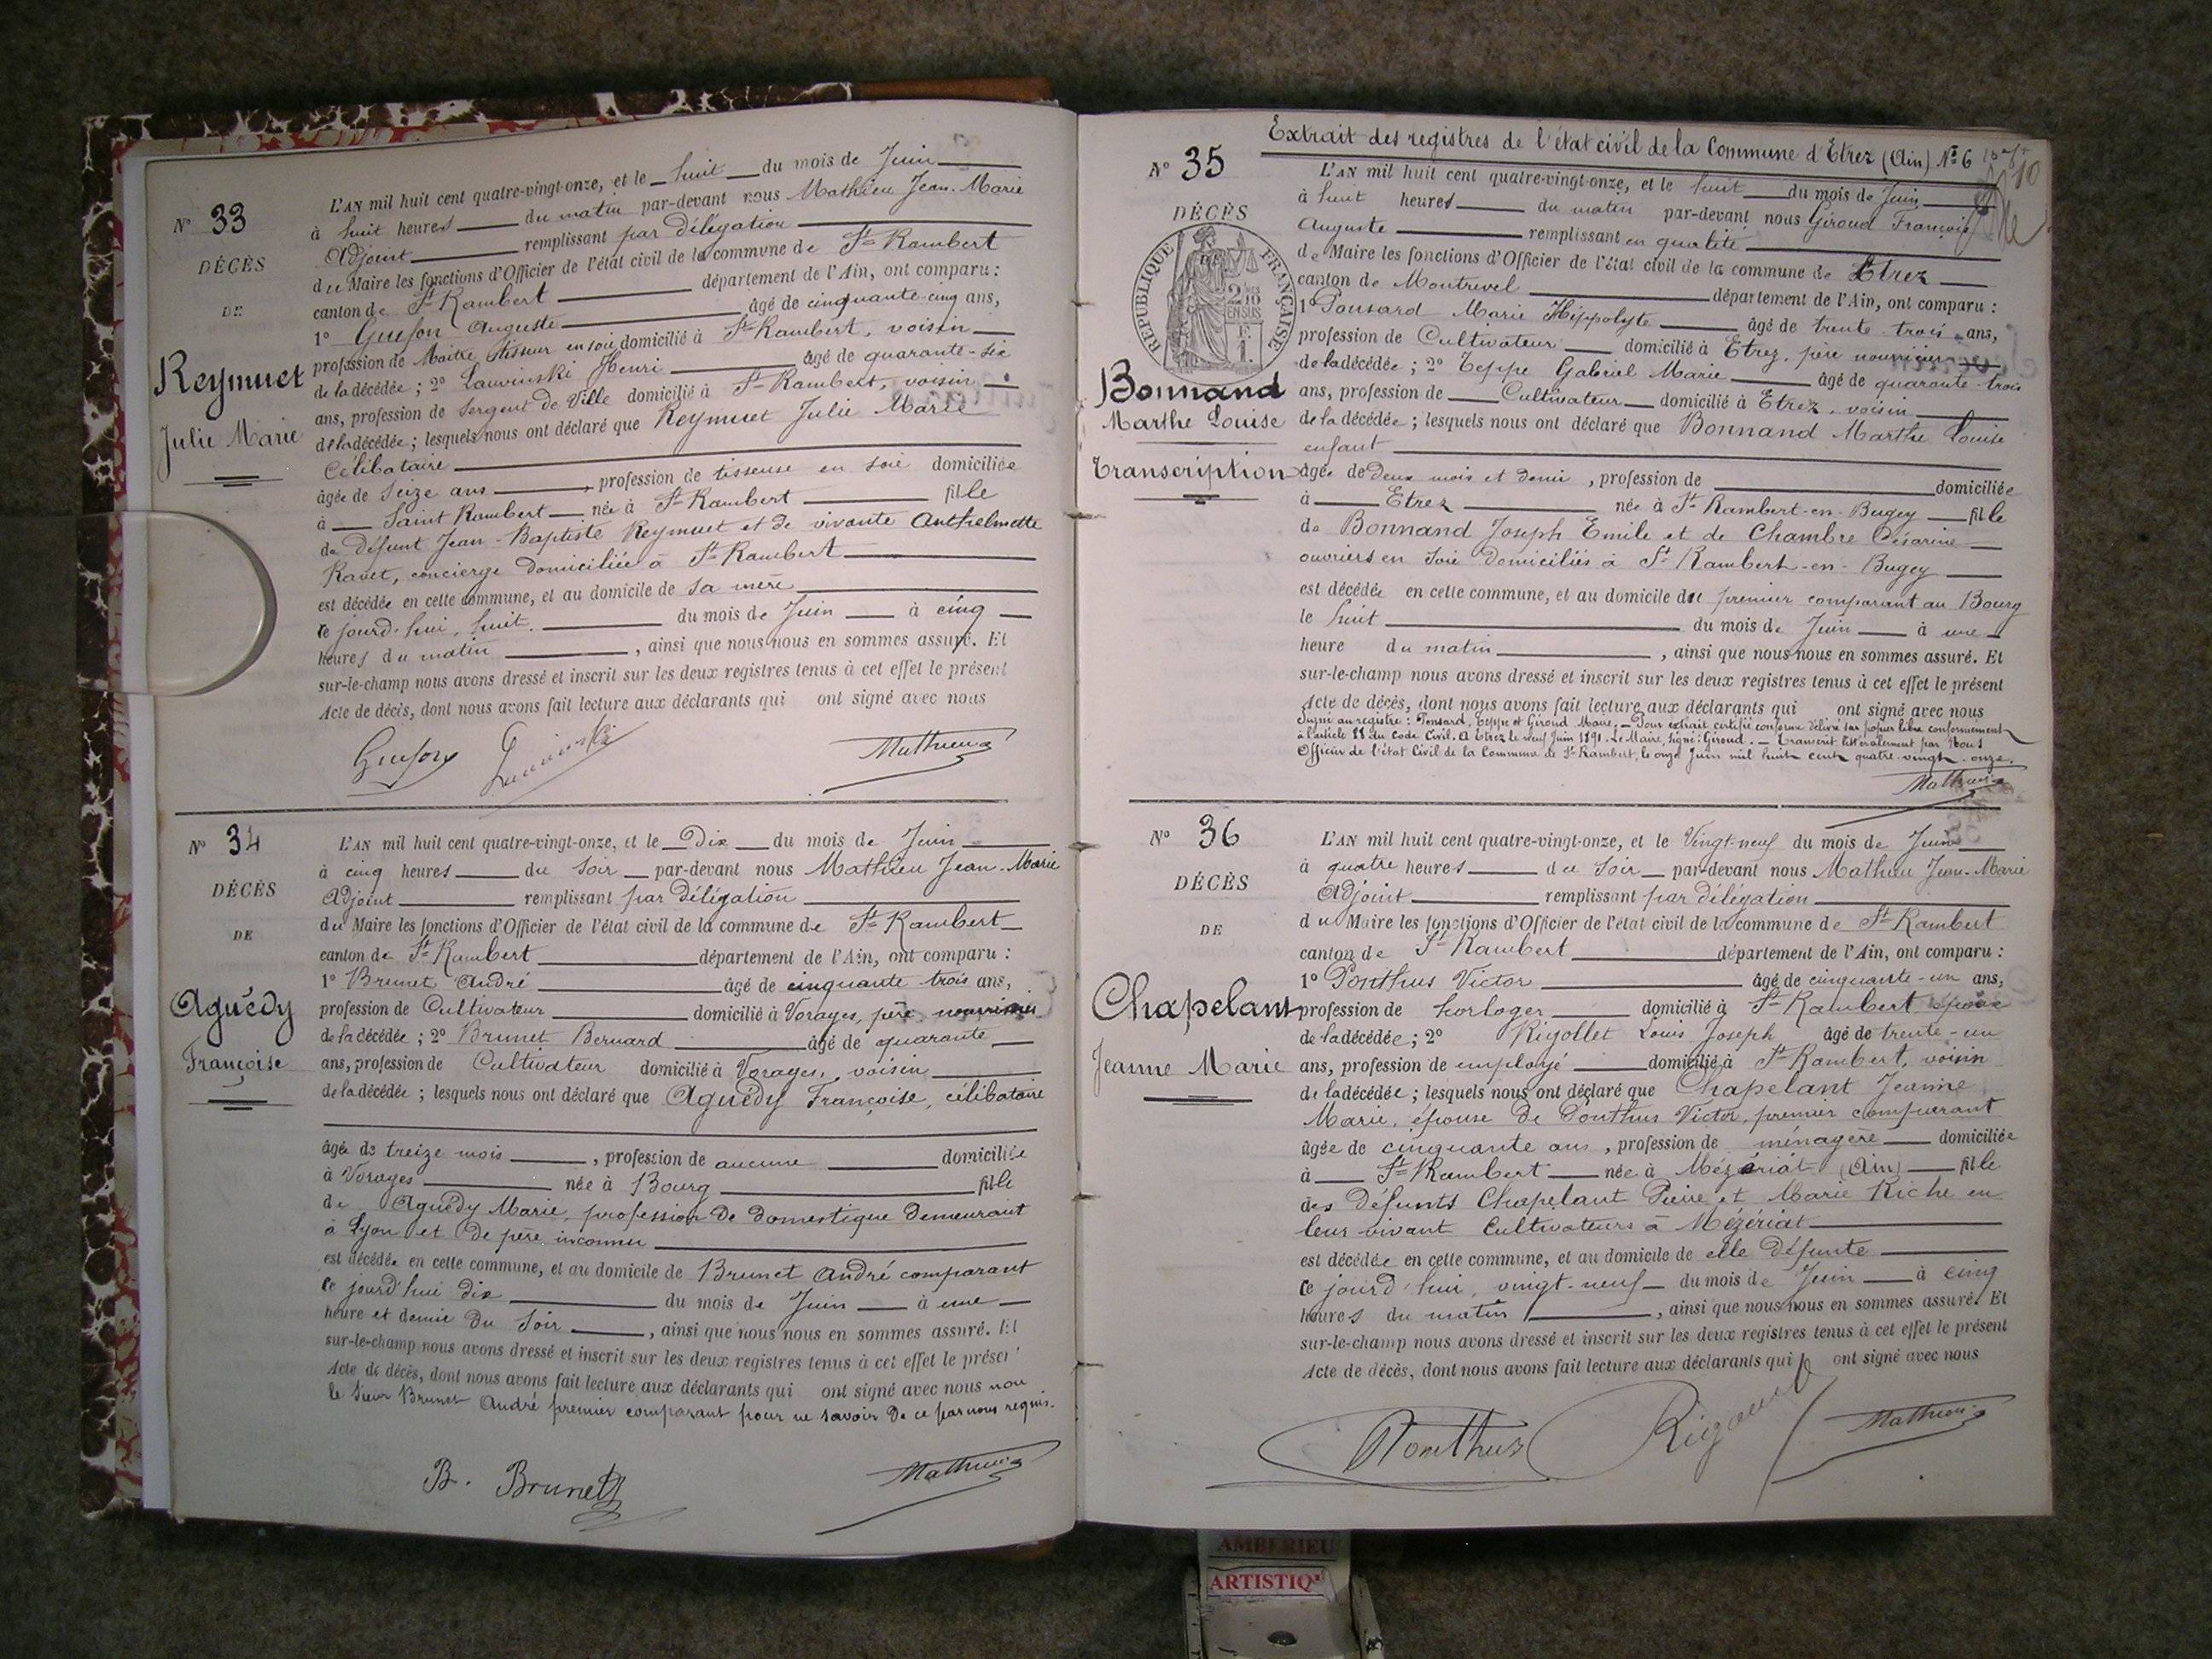 N° 33
DÉCÈS
DE
Reymuet
Julie Marie
L'AN mil huit cent quatre-vingt-onze, et le huit du mois de Juin
à huit heures du matin par-devant nous Mathieu Jean-Marie
Adjoint remplissant par délégation
du Maire les fonctions d'Officier de l'état civil de la commune de St Rambert
canton de St Rambert département de l'Ain, ont comparu :
1° Auguste âgé de cinquante-cinq ans,
profession de Maître tisseur en soie domicilié à St Rambert, voisin
de la décédée ; 2° Lauvinski Henri âgé de quarante-six
ans, profession de Sergent de Ville domicilié à St Rambert, voisin
de la décédée ; lesquels nous ont déclaré que Reymuet Julie Marie
Célibataire
âgée de Seize ans, profession de tisseuse en soie domiciliée
à Saint Rambert née à St Rambert fille
de défunt Jean-Baptiste Reymuet et de vivante Anthelmette
Ravet, concierge domiciliée à St Rambert
est décédée en cette commune, et au domicile de sa mère
ce jourd'hui, huit du mois de Juin à cinq
heures du matin, ainsi que nous nous en sommes assuré. Et
sur-le-champ nous avons dressé et inscrit sur les deux registres tenus à cet effet le présent
Acte de décès, dont nous avons fait lecture aux déclarants qui ont signé avec nous
Mathieu
N° 34
DÉCÈS
DE
Aguédy
Françoise
L'AN mil huit cent quatre-vingt-onze, et le Dix du mois de Juin
à cinq heures du soir par-devant nous Mathieu Jean-Marie
Adjoint remplissant par délégation
du Maire les fonctions d'Officier de l'état civil de la commune de St Rambert
canton de St Rambert département de l'Ain, ont comparu :
1° Brunet André âgé de cinquante trois ans,
profession de Cultivateur domicilié à Vorages, père nourricier
de la décédée ; 2° Brunet Bernard âgé de quarante
ans, profession de Cultivateur domicilié à Vorages, voisin
de la décédée ; lesquels nous ont déclaré que Aguédy Françoise, célibataire
âgée de treize mois, profession de aucune domiciliée
à Vorages née à Bourg fille
de Aguédy Marie, profession de domestique demeurant
à Lyon et de père inconnu
est décédée en cette commune, et au domicile de Brunet André comparant
ce jourd'hui dix du mois de Juin à une
heure et demie du soir, ainsi que nous nous en sommes assuré. Et
sur-le-champ nous avons dressé et inscrit sur les deux registres tenus à cet effet le présent
Acte de décès, dont nous avons fait lecture aux déclarants qui ont signé avec nous non
le Sieur Brunet André premier comparant pour ne savoir de ce par nous requis.
B. Brunet
Mathieu
Extrait des registres de l'état civil de la Commune d'Etrez (Ain) N° 6
10
N° 35
DÉCÈS
RÉPUBLIQUE FRANÇAISE
2/10 EN SUS
F. 1.
Bonnand
Marthe Louise
Transcription
L'AN mil huit cent quatre-vingt-onze, et le huit du mois de Juin
à huit heures du matin par-devant nous Giroud François
Auguste remplissant en qualité
de Maire les fonctions d'Officier de l'état civil de la commune de Etrez
canton de Montrevel département de l'Ain, ont comparu :
1° Ponsard Marie Hippolyte âgé de trente-trois ans,
profession de Cultivateur domicilié à Etrez, père nourricier
de la décédée ; 2° Teppe Gabriel Marie âgé de quarante-trois
ans, profession de Cultivateur domicilié à Etrez, voisin
de la décédée ; lesquels nous ont déclaré que Bonnand Marthe Louise
enfant
âgée de deux mois et demi, profession de domiciliée
à Etrez née à St Rambert-en-Bugey fille
de Bonnand Joseph Emile et de Chambre Césarine
ouvriers en soie domiciliés à St Rambert-en-Bugey
est décédée en cette commune, et au domicile du premier comparant au Bourg
le huit du mois de Juin à une
heure du matin, ainsi que nous nous en sommes assuré. Et
sur-le-champ nous avons dressé et inscrit sur les deux registres tenus à cet effet le présent
Acte de décès, dont nous avons fait lecture aux déclarants qui ont signé avec nous
Signé au registre : Ponsard, Teppe et Giroud Maire. — Pour extrait certifié conforme délivré sur papier libre conformément
à l'article 88 du Code Civil. A Etrez le neuf Juin 1891. Le Maire, Signé : Giroud. — Transcrit littéralement par Nous
Officier de l'état Civil de la Commune de St Rambert, le onze Juin mil huit cent quatre-vingt-onze.
Mathieu
N° 36
DÉCÈS
DE
Chapelant
Jeanne Marie
L'AN mil huit cent quatre-vingt-onze, et le Vingt-neuf du mois de Juin
à quatre heures du soir par-devant nous Mathieu Jean-Marie
Adjoint remplissant par délégation
du Maire les fonctions d'Officier de l'état civil de la commune de St Rambert
canton de St Rambert département de l'Ain, ont comparu :
1° Ponthus Victor âgé de cinquante-un ans,
profession de horloger domicilié à St Rambert époux
de la décédée ; 2° Rigollet Louis Joseph âgé de trente-un
ans, profession de employé domicilié à St Rambert, voisin
de la décédée ; lesquels nous ont déclaré que Chapelant Jeanne
Marie, épouse de Ponthus Victor, premier comparant
âgée de cinquante ans, profession de ménagère domiciliée
à St Rambert née à Mézériat (Ain) fille
des défunts Chapelant Pierre et Marie Riche en
leur vivant Cultivateurs à Mézériat
est décédée en cette commune, et au domicile de elle défunte
ce jourd'hui, vingt-neuf du mois de Juin à cinq
heures du matin, ainsi que nous nous en sommes assuré. Et
sur-le-champ nous avons dressé et inscrit sur les deux registres tenus à cet effet le présent
Acte de décès, dont nous avons fait lecture aux déclarants qui ont signé avec nous
Ponthus
Mathieu
AMBERIEU
ARTISTIQ